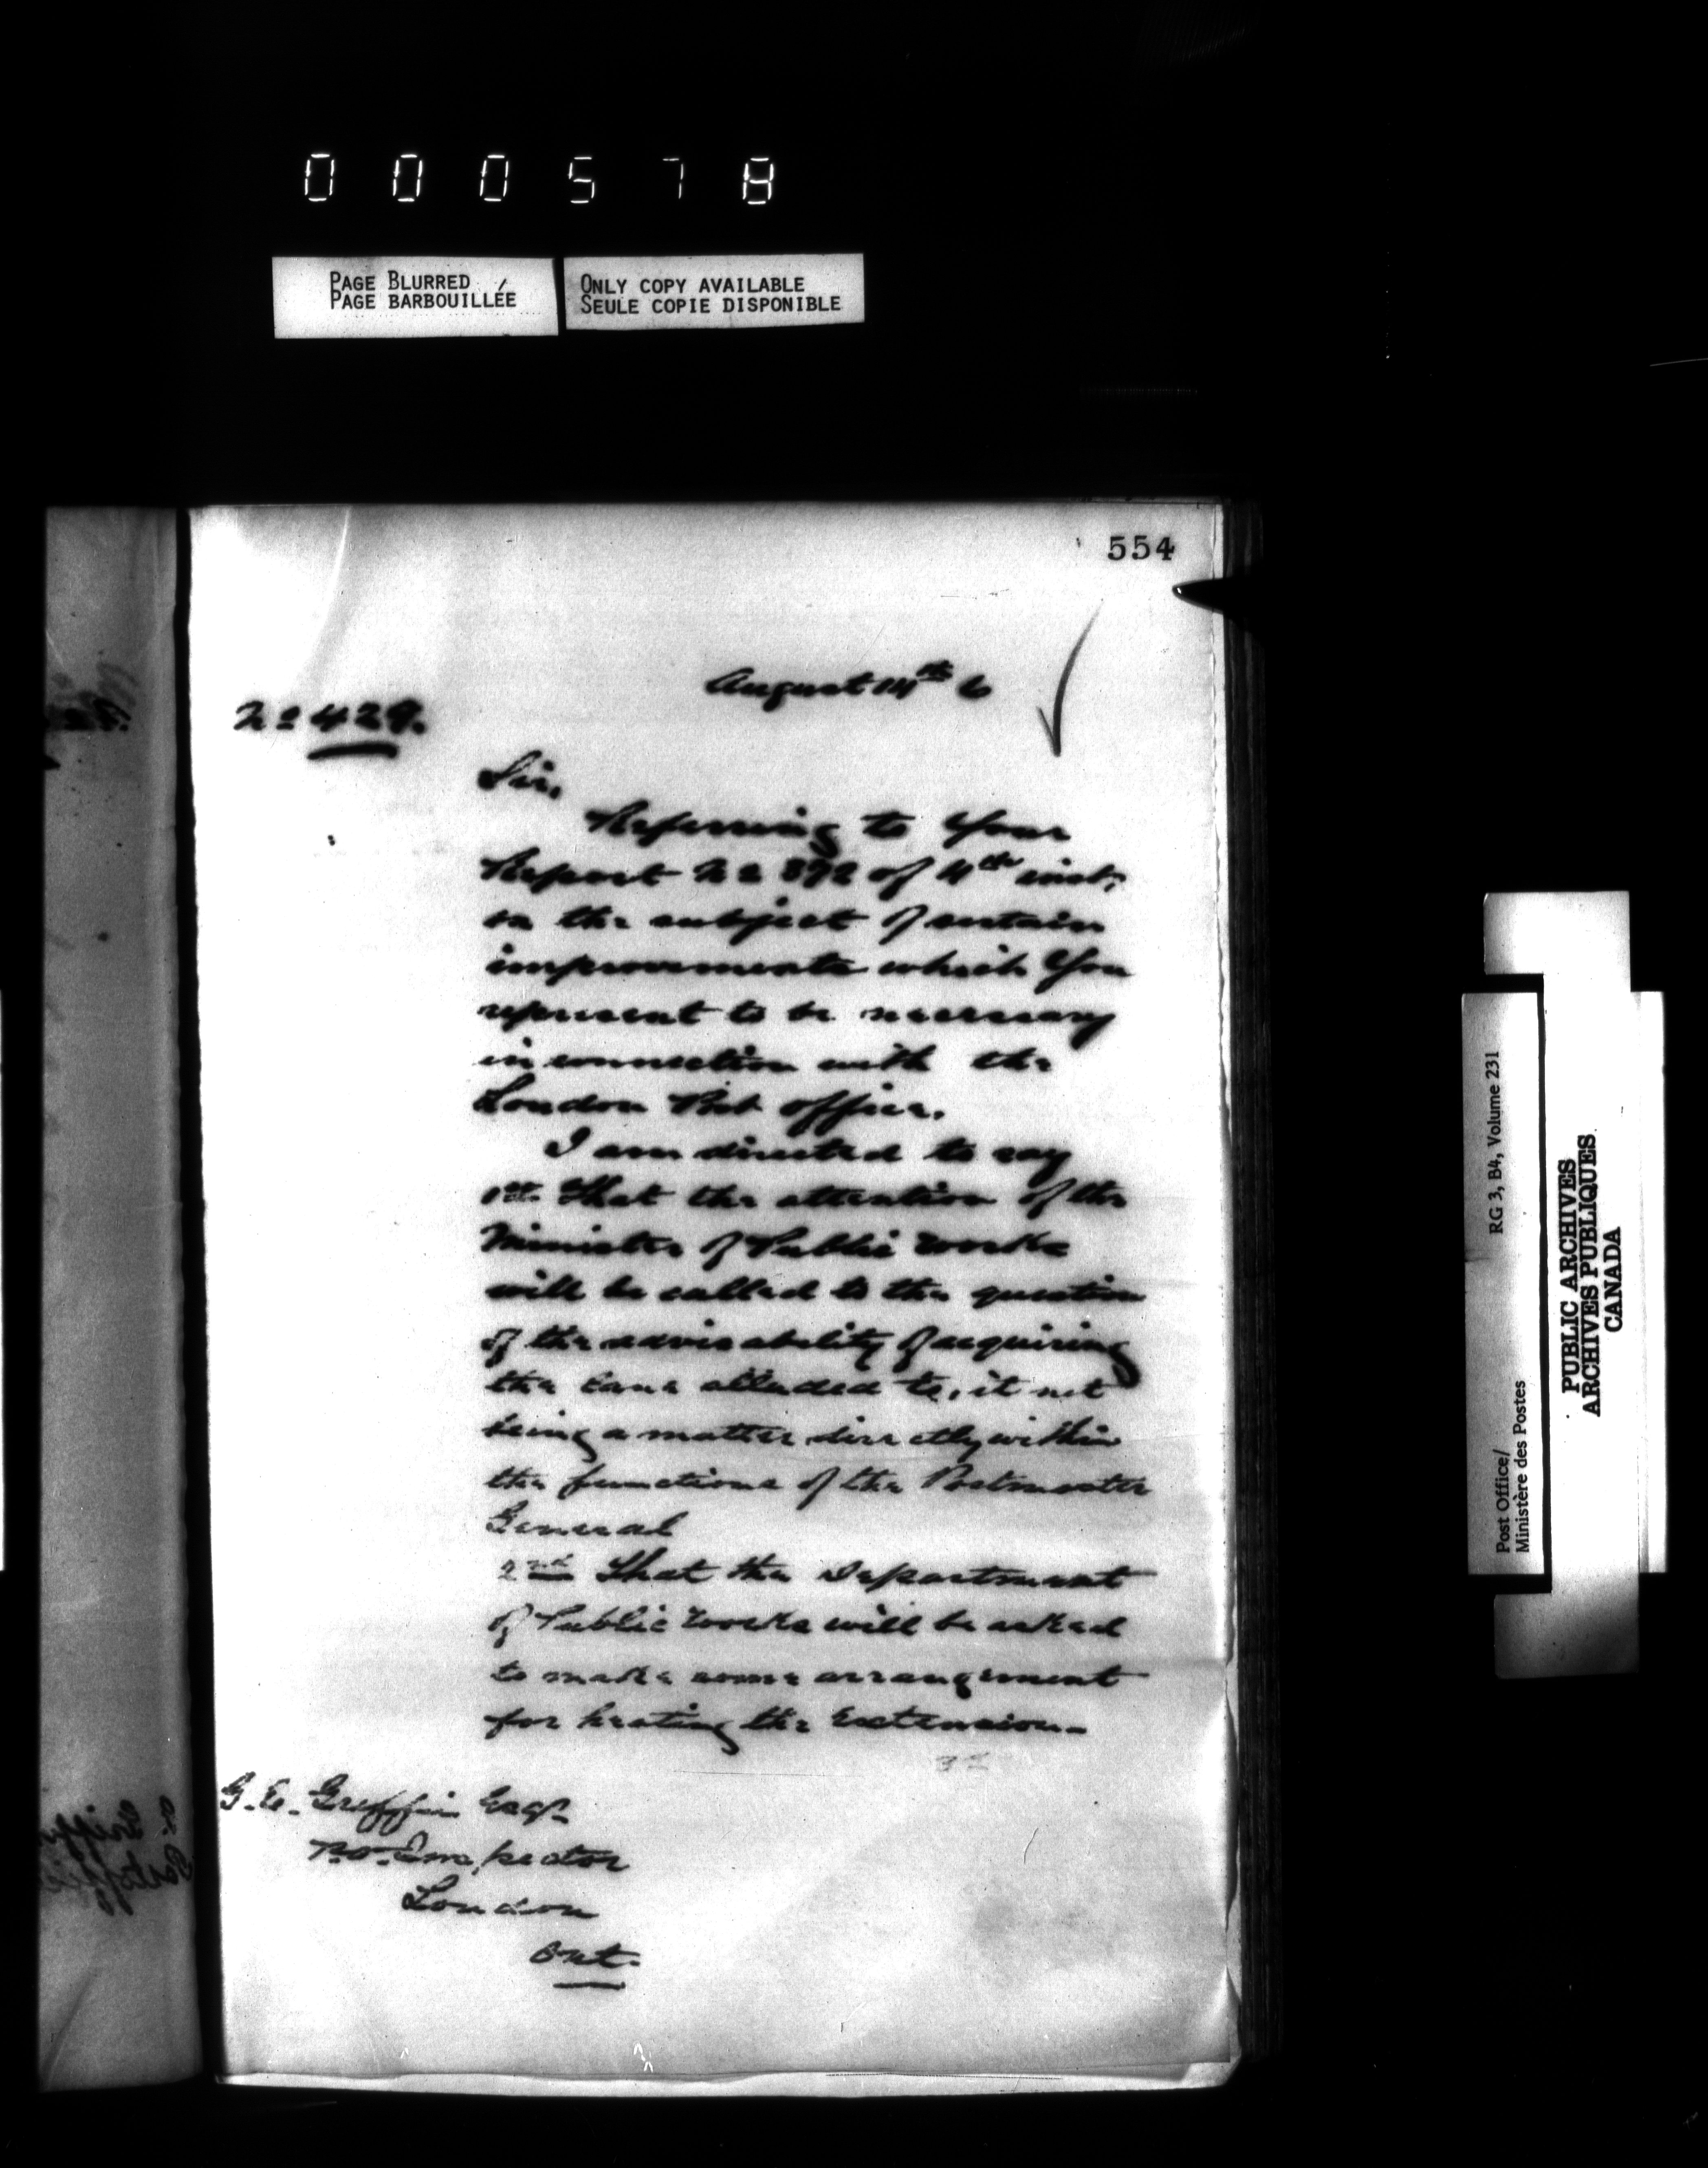 000578
PAGE BLURRED
PAGE BARBOUILLÉE
ONLY COPY AVAILABLE
SEULE COPIE DISPONIBLE
554
August 14th 6
No 429.
Sir,
Referring to Your
Report No 392 of 4th inst,
on the subject of certain
improvements which You
represent to be necessary
in connection with the
London Post office.
I am directed to say
1st. That the attention of the
Minister of Public Works
will be called to the question
of the advisability of acquiring
the lane alluded to, it not
being a matter directly within
the functions of the Postmaster
General
2nd That the Department
of Public Works will be asked
to make some arrangement
for heating the Extension.
3d
G. E. Griffin Esqr.
P.O. Inspector
London
Ont.
RG 3, B4, Volume 231
Post Office/
Ministère des Postes
PUBLIC ARCHIVES
ARCHIVES PUBLIQUES
CANADA